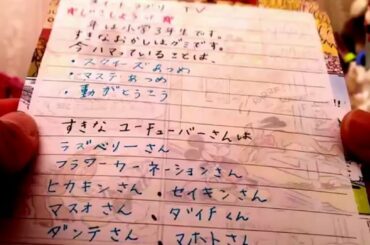 ★じこしょうかい★
年は小学3年生です。
すきなおかしはグミです。
今ハマっていることは、
・スクイーズあつめ
・マステあつめ
・動がとうこう
すきなユーチューバーさんは
ラズベリーさん
フラワーカーネーションさん
ヒカキンさん・セイキンさん
マスオさん・ダイチくん
ダンテさん マホトさん